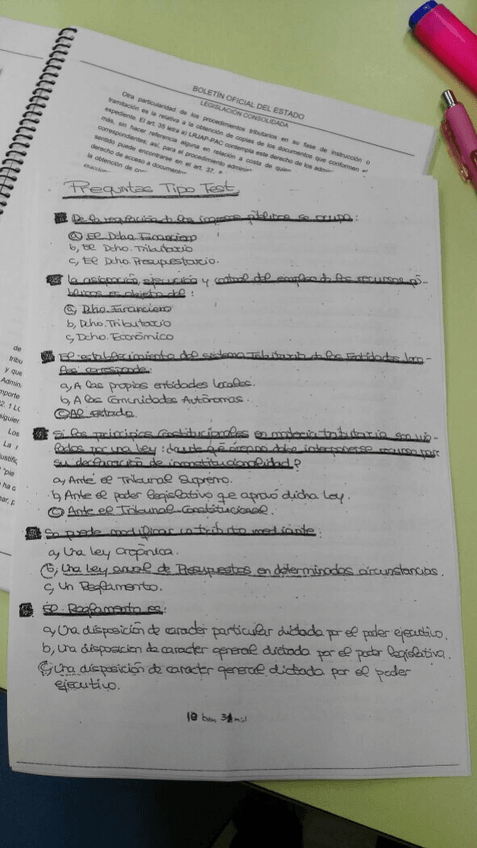 BOLETÍN OFICIAL DEL ESTADO
LEGISLACIÓN CONSOLIDADA
Otra particularidad de los procedimientos tributarios en su fase de instrucción o
tramitación es la relativa a la obtención de copias de los documentos que conforman el
expediente. El art. 35 letra a) LRJAP-PAC contempla este derecho de los
más, sin hacer referencia alguna en relación a costa de quien
correspondientes; así, para el procedimiento
sentido puede encontrarse en el art. 37.
derecho de acceso a
la obtención de
Preguntas Tipo Test
De la regulación de los ingresos públicos se ocupa:
a, El Dcho. Financiero
b, El Dcho. Tributario
c, El Dcho. Presupuestario.
La asignación, ejecución y control del empleo de los recursos pú-
blicos es objeto del:
a, Dcho. Financiero
b, Dcho. Tributario
c, Dcho. Económico
El establecimiento del sistema Tributario de las Entidades loca-
les corresponde:
a, A las propias entidades locales.
b, A las Comunidades Autónomas.
c, Al estado.
Si los principios Constitucionales en materia tributaria son vio-
lados por una ley: ¿ante qué órgano debe interponerse recurso por
su declaración de inconstitucionalidad?
a, Ante el Tribunal Supremo.
b, Ante el poder legislativo que aprobó dicha ley.
c, Ante el Tribunal Constitucional.
Se puede modificar un tributo mediante:
a, Una ley orgánica.
b, Una ley anual de Presupuestos en determinadas circunstancias.
c, Un Reglamento.
El Reglamento es:
a, Una disposición de carácter particular dictada por el poder ejecutivo.
b, Una disposición de carácter general dictada por el poder legislativo.
c, Una disposición de carácter general dictada por el poder
ejecutivo.